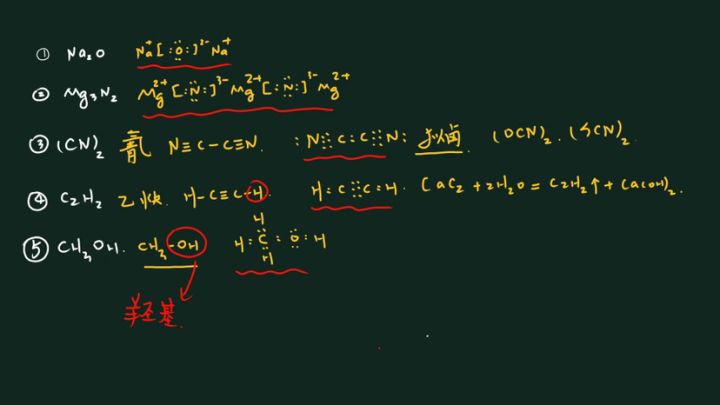 ① Na₂O Na⁺[:Ö:]²⁻Na⁺
② Mg₃N₂ Mg²⁺[:N̈:]³⁻Mg²⁺[:N̈:]³⁻Mg²⁺
③ (CN)₂ 氰 N≡C-C≡N. :N⫶⫶C:C⫶⫶N: 拟卤 (OCN)₂. (SCN)₂
④ C₂H₂ 乙炔 H-C≡C-H H:C⫶⫶C:H. CaC₂+2H₂O=C₂H₂↑+Ca(OH)₂.
H
⑤ CH₃OH. CH₃-OH H:C̈:Ö:H
H
羟基